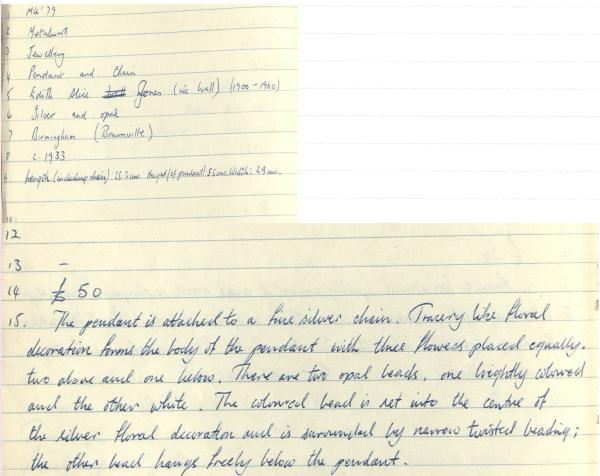 M4'79
2 Metalwork
3 Jewellery
4 Pendant and Chain
5 Edith Alice Jones (née Wall) (1900-1960)
6 Silver and opal
7 Birmingham (Bournville)
8 c. 1933
9. Length (including chain): cm. Height (of pendant) 5.5 cm. Width: 2.9 cm.
10.
12
13 –
14 £ 50
15. The pendant is attached to a fine silver chain. Tracery like floral
decoration forms the body of the pendant with three flowers placed equally.
two above and one below. There are two opal beads, one brightly coloured
and the other white. The coloured bead is set into the centre of
the silver floral decoration and is surounded by narrow twisted beading;
the other bead hangs freely below the pendant.